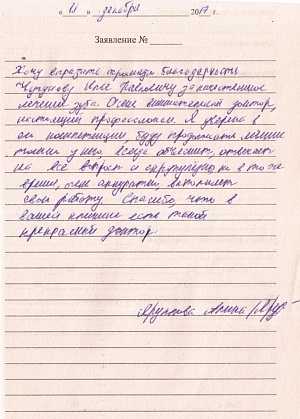 « 11 » декабря 2017 г.
Заявление №
Хочу выразить огромную благодарность
Илье Павловичу за качественное
лечение зуба. Очень внимательный доктор,
настоящий профессионал. Я уверена в
его компетенции, буду продолжать лечение
только у него. Всегда объяснит, отвечает
на все вопросы и скрупулезно, но в то же
время, очень аккуратно, выполняет
свою работу. Спасибо, что в
вашей клинике есть такой
прекрасный доктор.